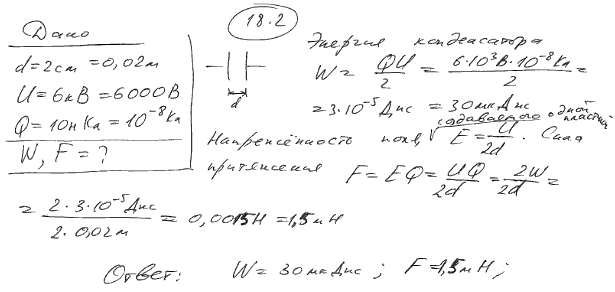 18.2
Дано
d=2см=0,02м
U=6кВ=6000В
Q=10нКл=10⁻⁸Кл
W, F = ?
d
Энергия конденсатора
W = QU/2 = 6·10³В·10⁻⁸Кл/2 =
= 3·10⁻⁵Дж = 30мкДж
Напряжённость поля, создаваемого одной пластиной E = U/2d. Сила
притяжения F = EQ = UQ/2d = 2W/2d =
= 2·3·10⁻⁵Дж/2·0,02м = 0,0015Н = 1,5мН
Ответ: W = 30мкДж ; F = 1,5мН ;